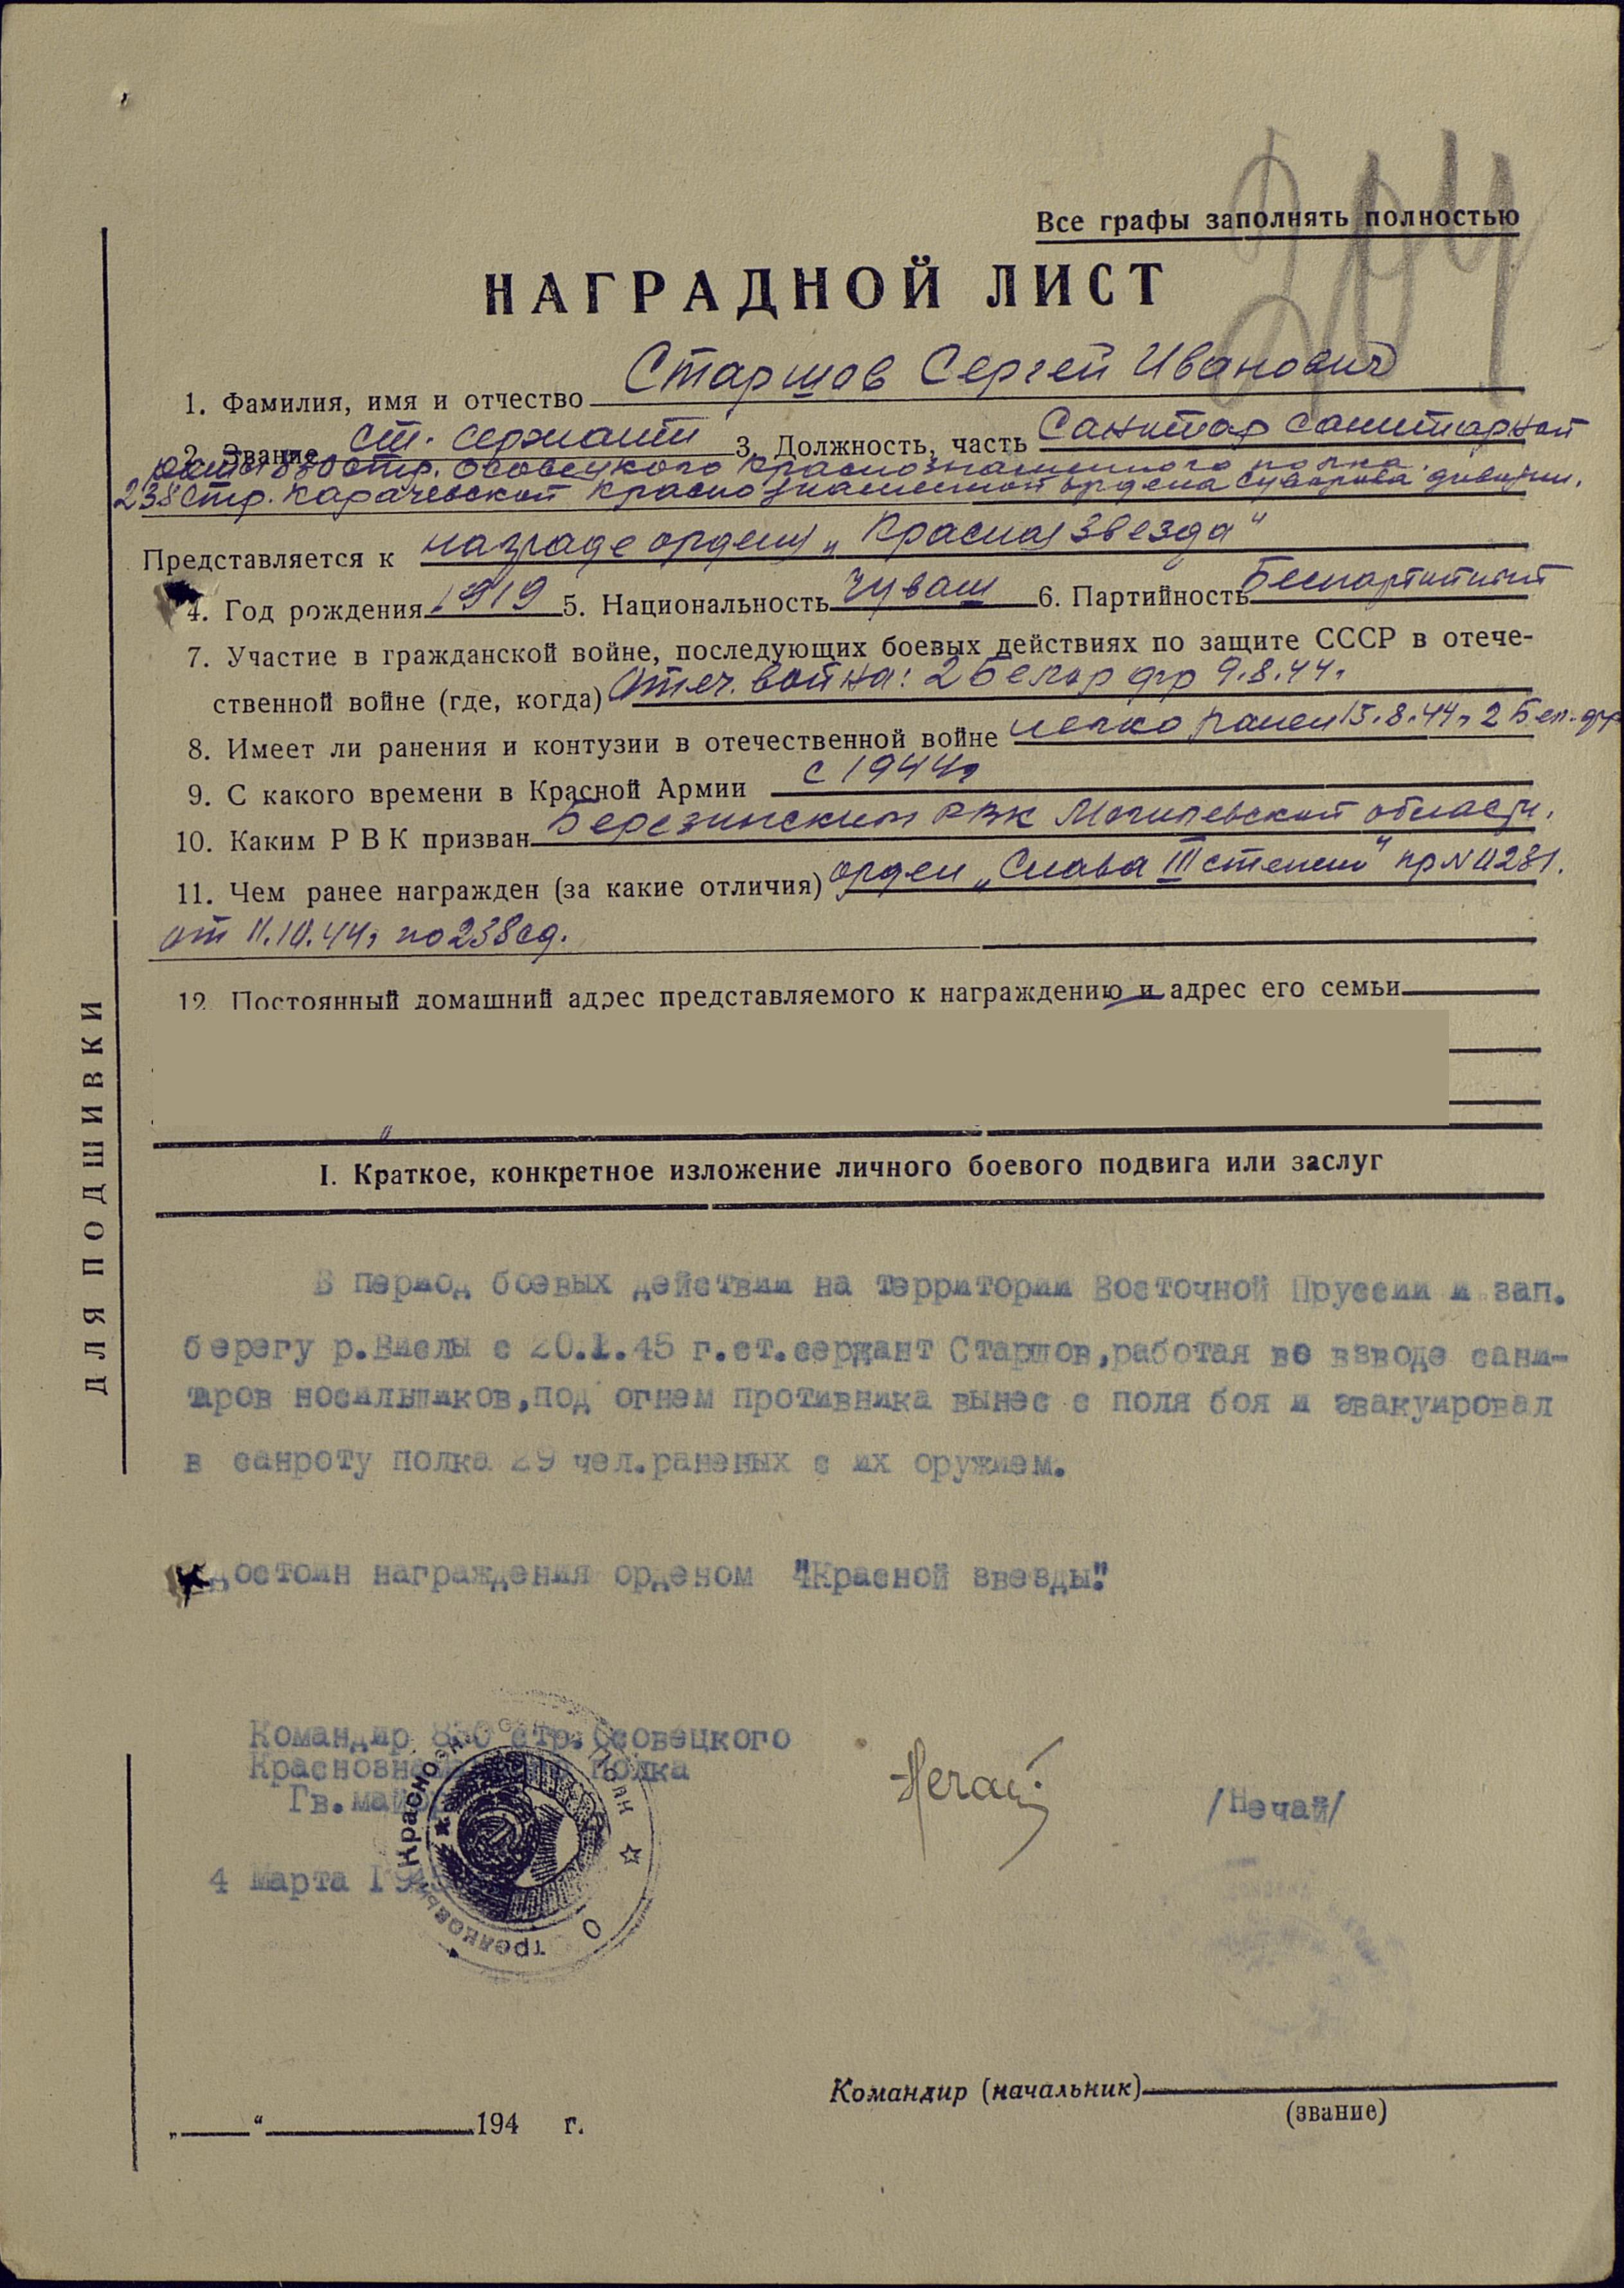 204
Все графы заполнять полностью
НАГРАДНОЙ ЛИСТ
1. Фамилия, имя и отчество Старшов Сергей Иванович
2. Звание ст. сержант 3. Должность, часть Санитар санитарной
роты 830 стр. Осовецкого Краснознаменного полка
238 стр. Карачевской Краснознаменной ордена Суворова дивизии.
Представляется к награде ордену „Красная Звезда"
4. Год рождения 1919 5. Национальность Чуваш 6. Партийность Беспартийный
7. Участие в гражданской войне, последующих боевых действиях по защите СССР в отече-
ственной войне (где, когда) Отеч. война: 2 Белор фр 9.8.44г.
8. Имеет ли ранения и контузии в отечественной войне легко ранен 15.8.44г 2 Бел. фр
9. С какого времени в Красной Армии с 1944г
10. Каким РВК призван Березинским РВК Могилевской области.
11. Чем ранее награжден (за какие отличия) орден „Слава III степени" пр № 0281.
от 11.10.44г по 238 сд.
12. Постоянный домашний адрес представляемого к награждению и адрес его семьи
I. Краткое, конкретное изложение личного боевого подвига или заслуг
В период боевых действии на территории Восточной Пруссии и зап.
берегу р.Вислы с 20.1.45 г.ст.сержант Старшов,работая во взводе сани-
таров носильшиков,под огнем противника вынес с поля боя и эвакуировал
в санроту полка 29 чел.раненых с их оружием.
Достоин награждения орденом "Красной звезды".
Командир 830 стр.Осовецкого
Краснознаменного полка
Гв.майор
Нечай
/Нечай/
4 Марта 1945
Командир (начальник)
(звание)
„ " 194 г.
ДЛЯ ПОДШИВКИ